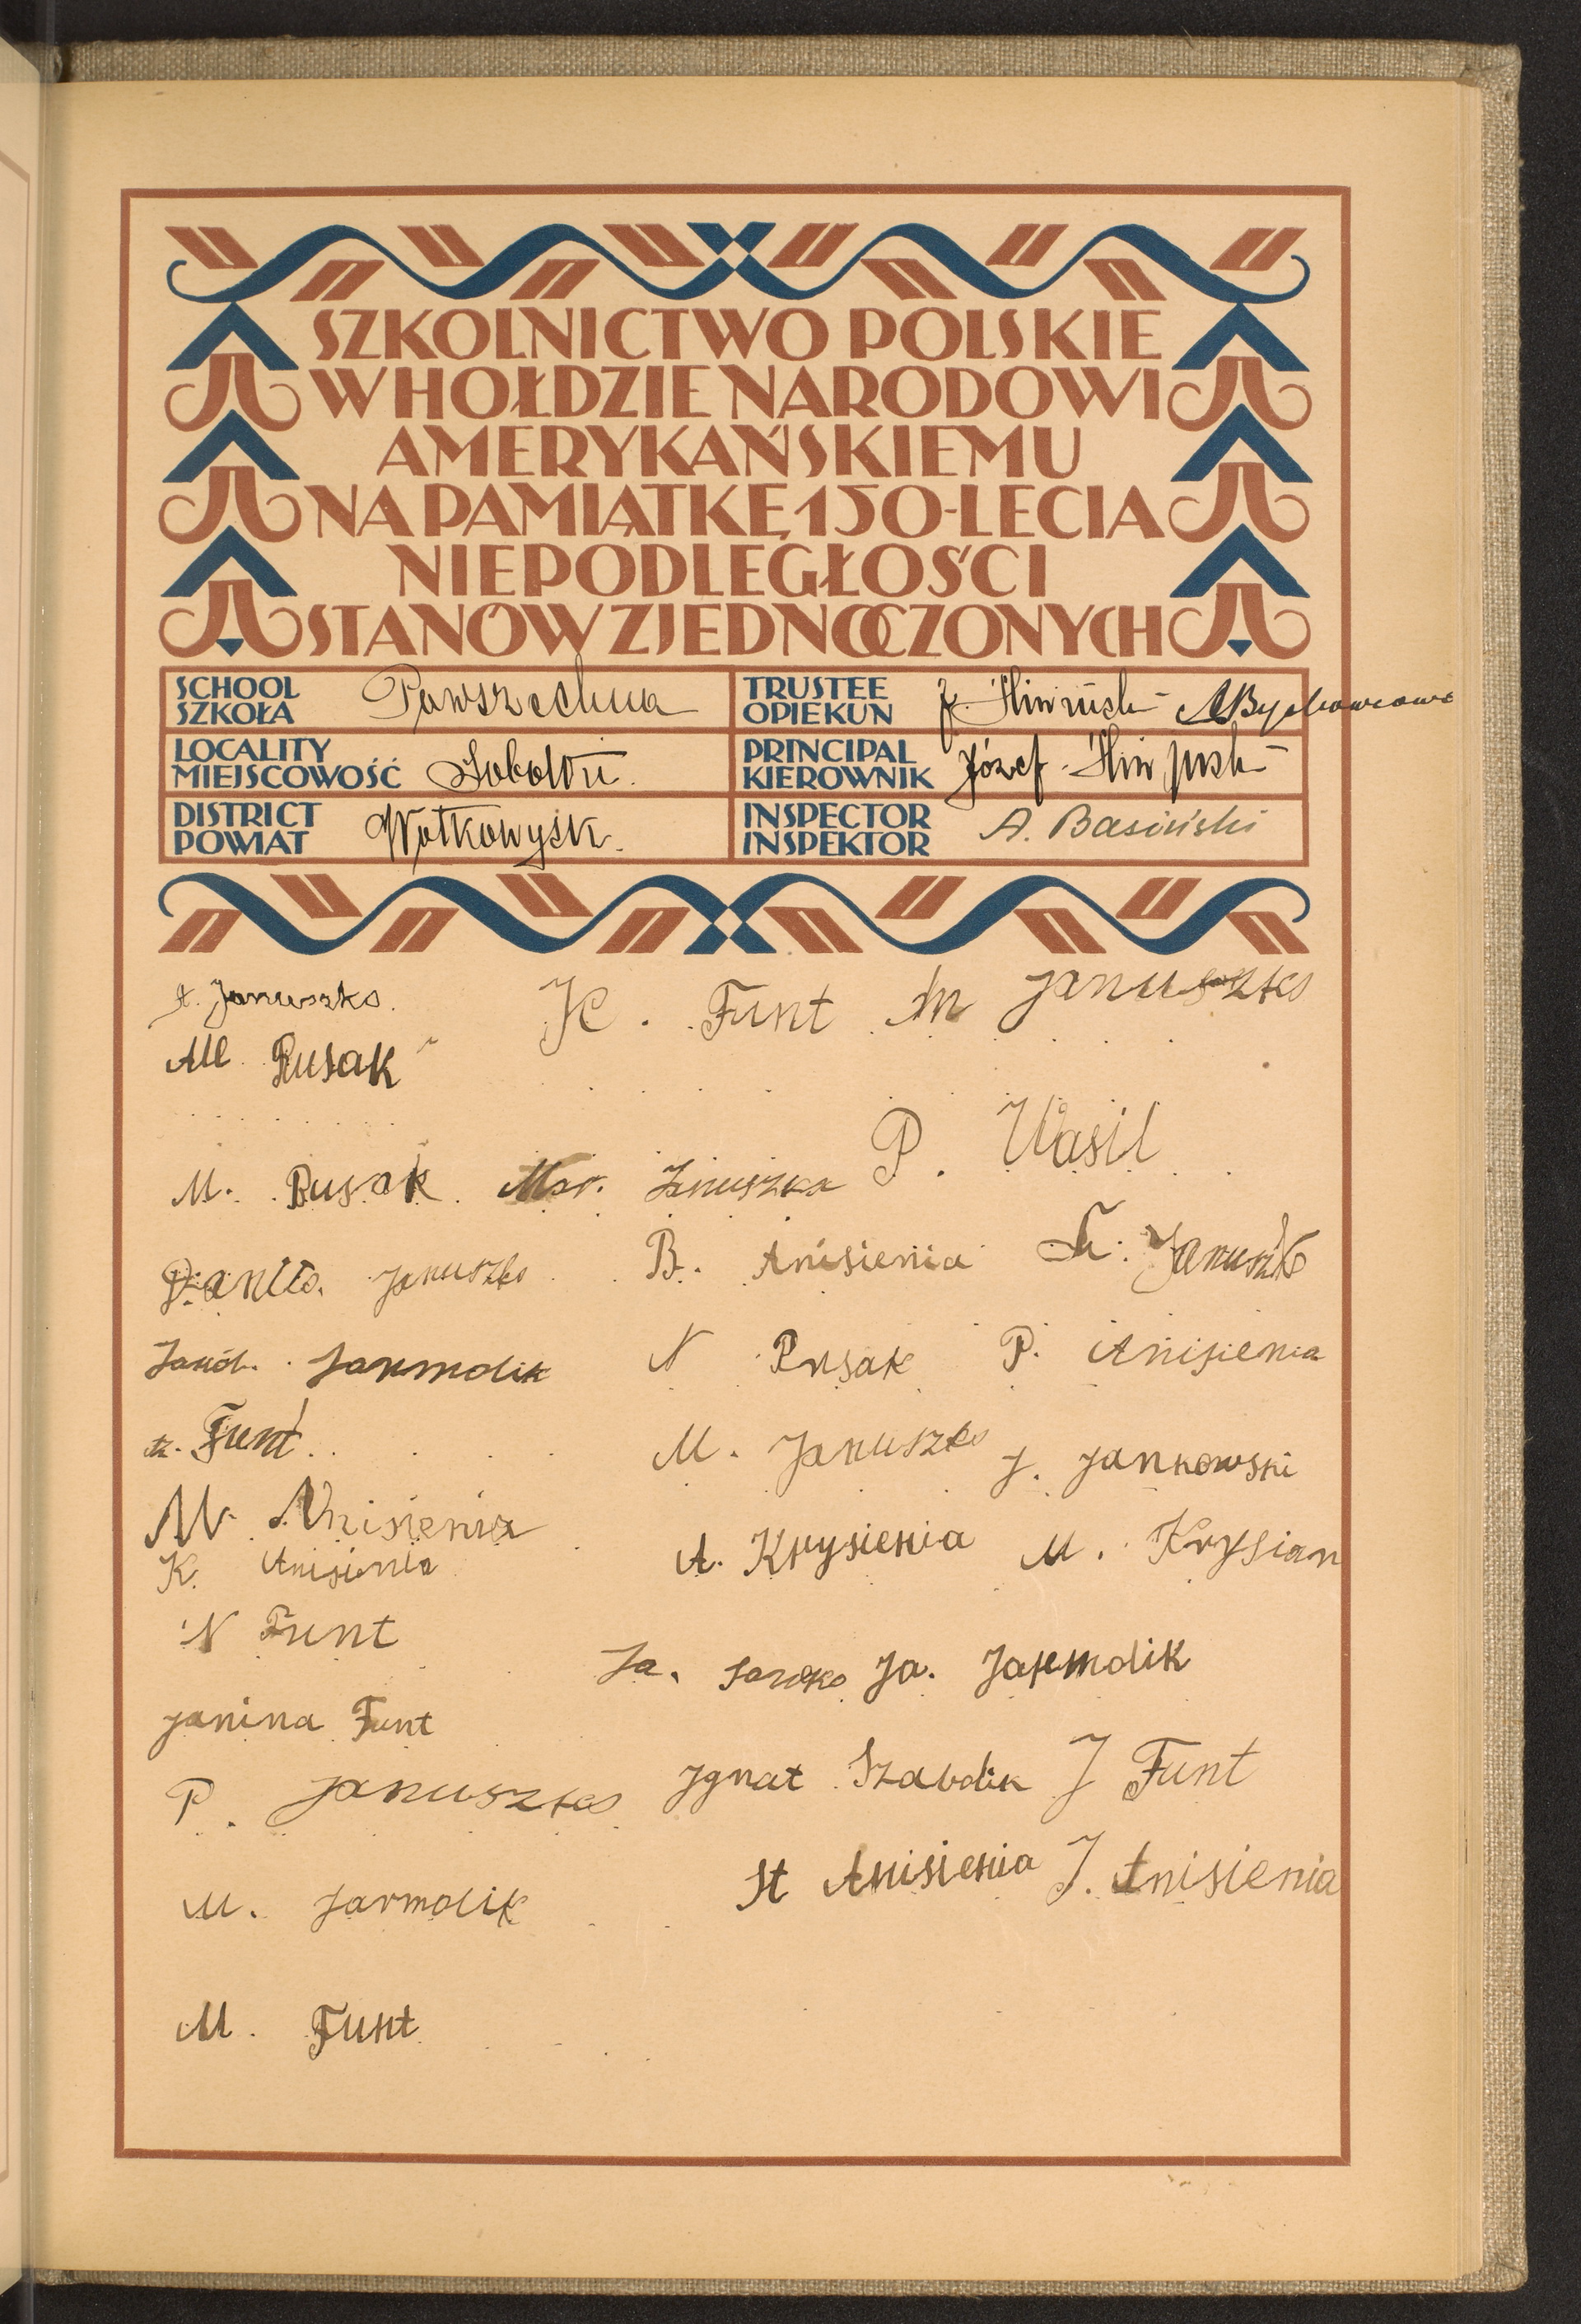 SZKOLNICTWO POLSKIE
W HOŁDZIE NARODOWI
AMERYKAŃSKIEMU
NA PAMIĄTKĘ 150-LECIA
NIEPODLEGŁOŚCI
STANÓW ZJEDNOCZONYCH
SCHOOL
SZKOŁA
Powszechna
TRUSTEE
OPIEKUN
J.
LOCALITY
MIEJSCOWOŚĆ
PRINCIPAL
KIEROWNIK
Józef
DISTRICT
POWIAT
Wołkowysk.
INSPECTOR
INSPEKTOR
A. Basiński
A. Januszko.
K. Funt M Januszko
M Rusak
P. Wasil
M. Rusak Mar. Januszka
Daniło. Januszko B. Anisienia Januszko
Jakób. Jarmolik N Rusak P. Anisienia
Funt. M. Januszko J. Jankowski
M. Anisienia
K. Anisienia A. Krysienia M. Krysian
N Funt
Ja. Ja. Jarmolik
Janina Funt
P. Januszko Jgnat Szabdik J Funt
St Anisienia J. Anisienia
M. Jarmolik
M. Funt